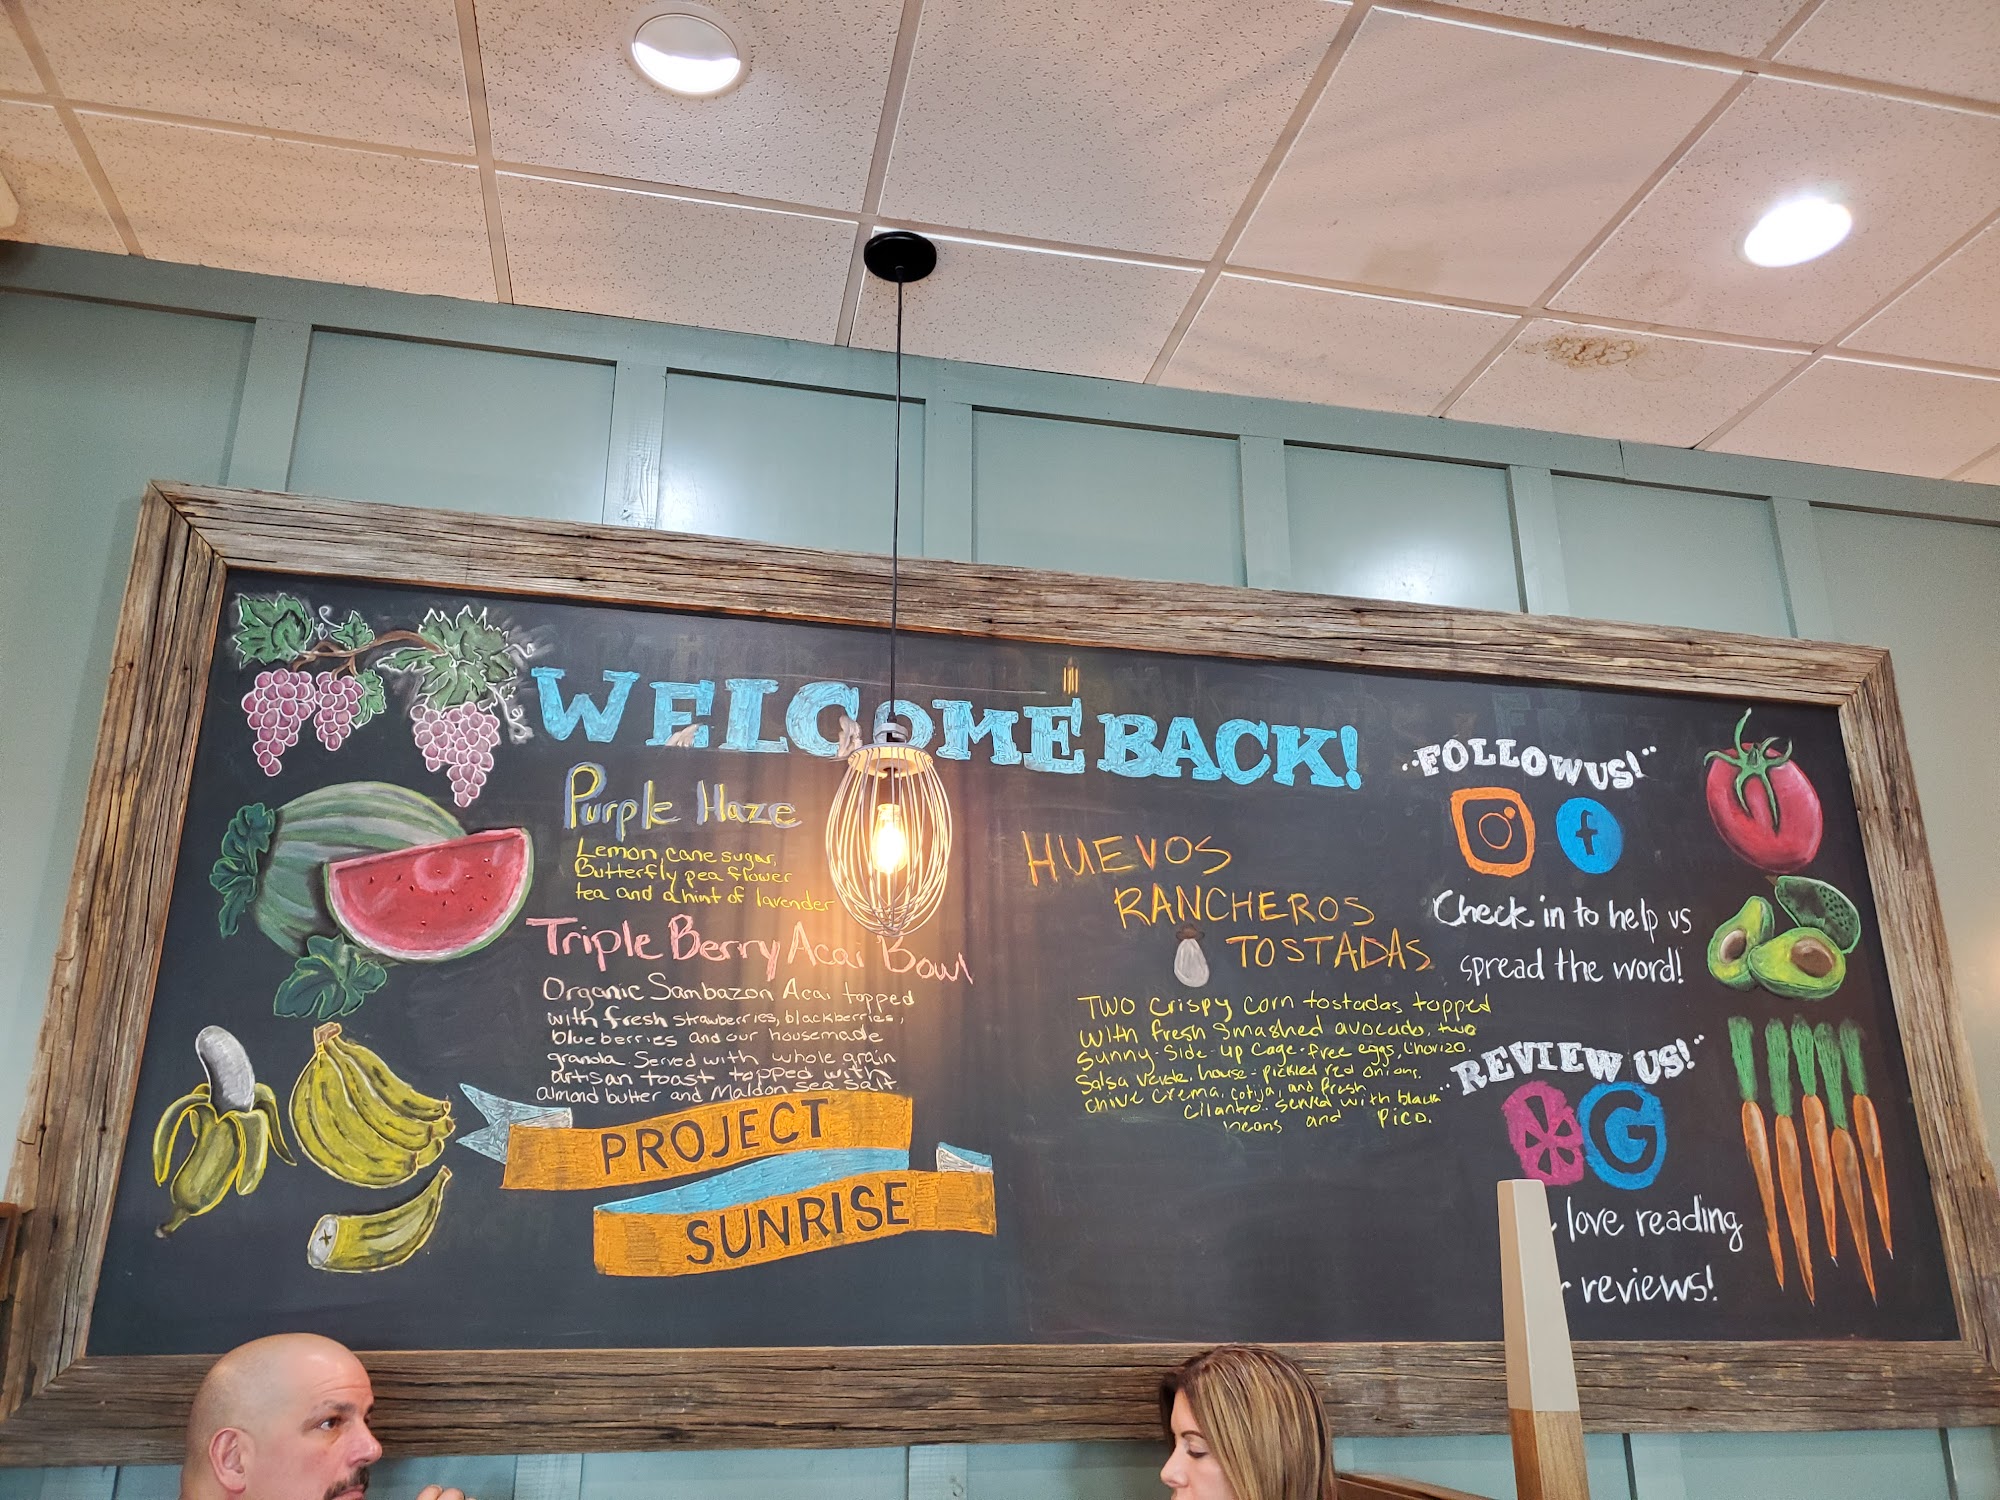 WELCOME BACK!
Purple Haze
Lemon, cane sugar,
Butterfly pea flower
tea and a hint of lavender
Triple Berry Acai Bowl
Organic Sambazon Acai topped
with fresh strawberries, blackberries,
blueberries and our housemade
granola. Served with whole grain
artisan toast topped with
almond butter and Maldon sea salt.
PROJECT
SUNRISE
HUEVOS
RANCHEROS
TOSTADAS
TWO crispy corn tostadas topped
with fresh smashed avocado, two
Sunny-Side-up Cage-free eggs, Chorizo.
Salsa Verde, house-pickled red onions.
Chive Crema, Cotija, and fresh
Cilantro. Served with black
beans and Pico.
"FOLLOW US!"
f
Check in to help us
spread the word!
"REVIEW US!"
G
love reading
reviews!